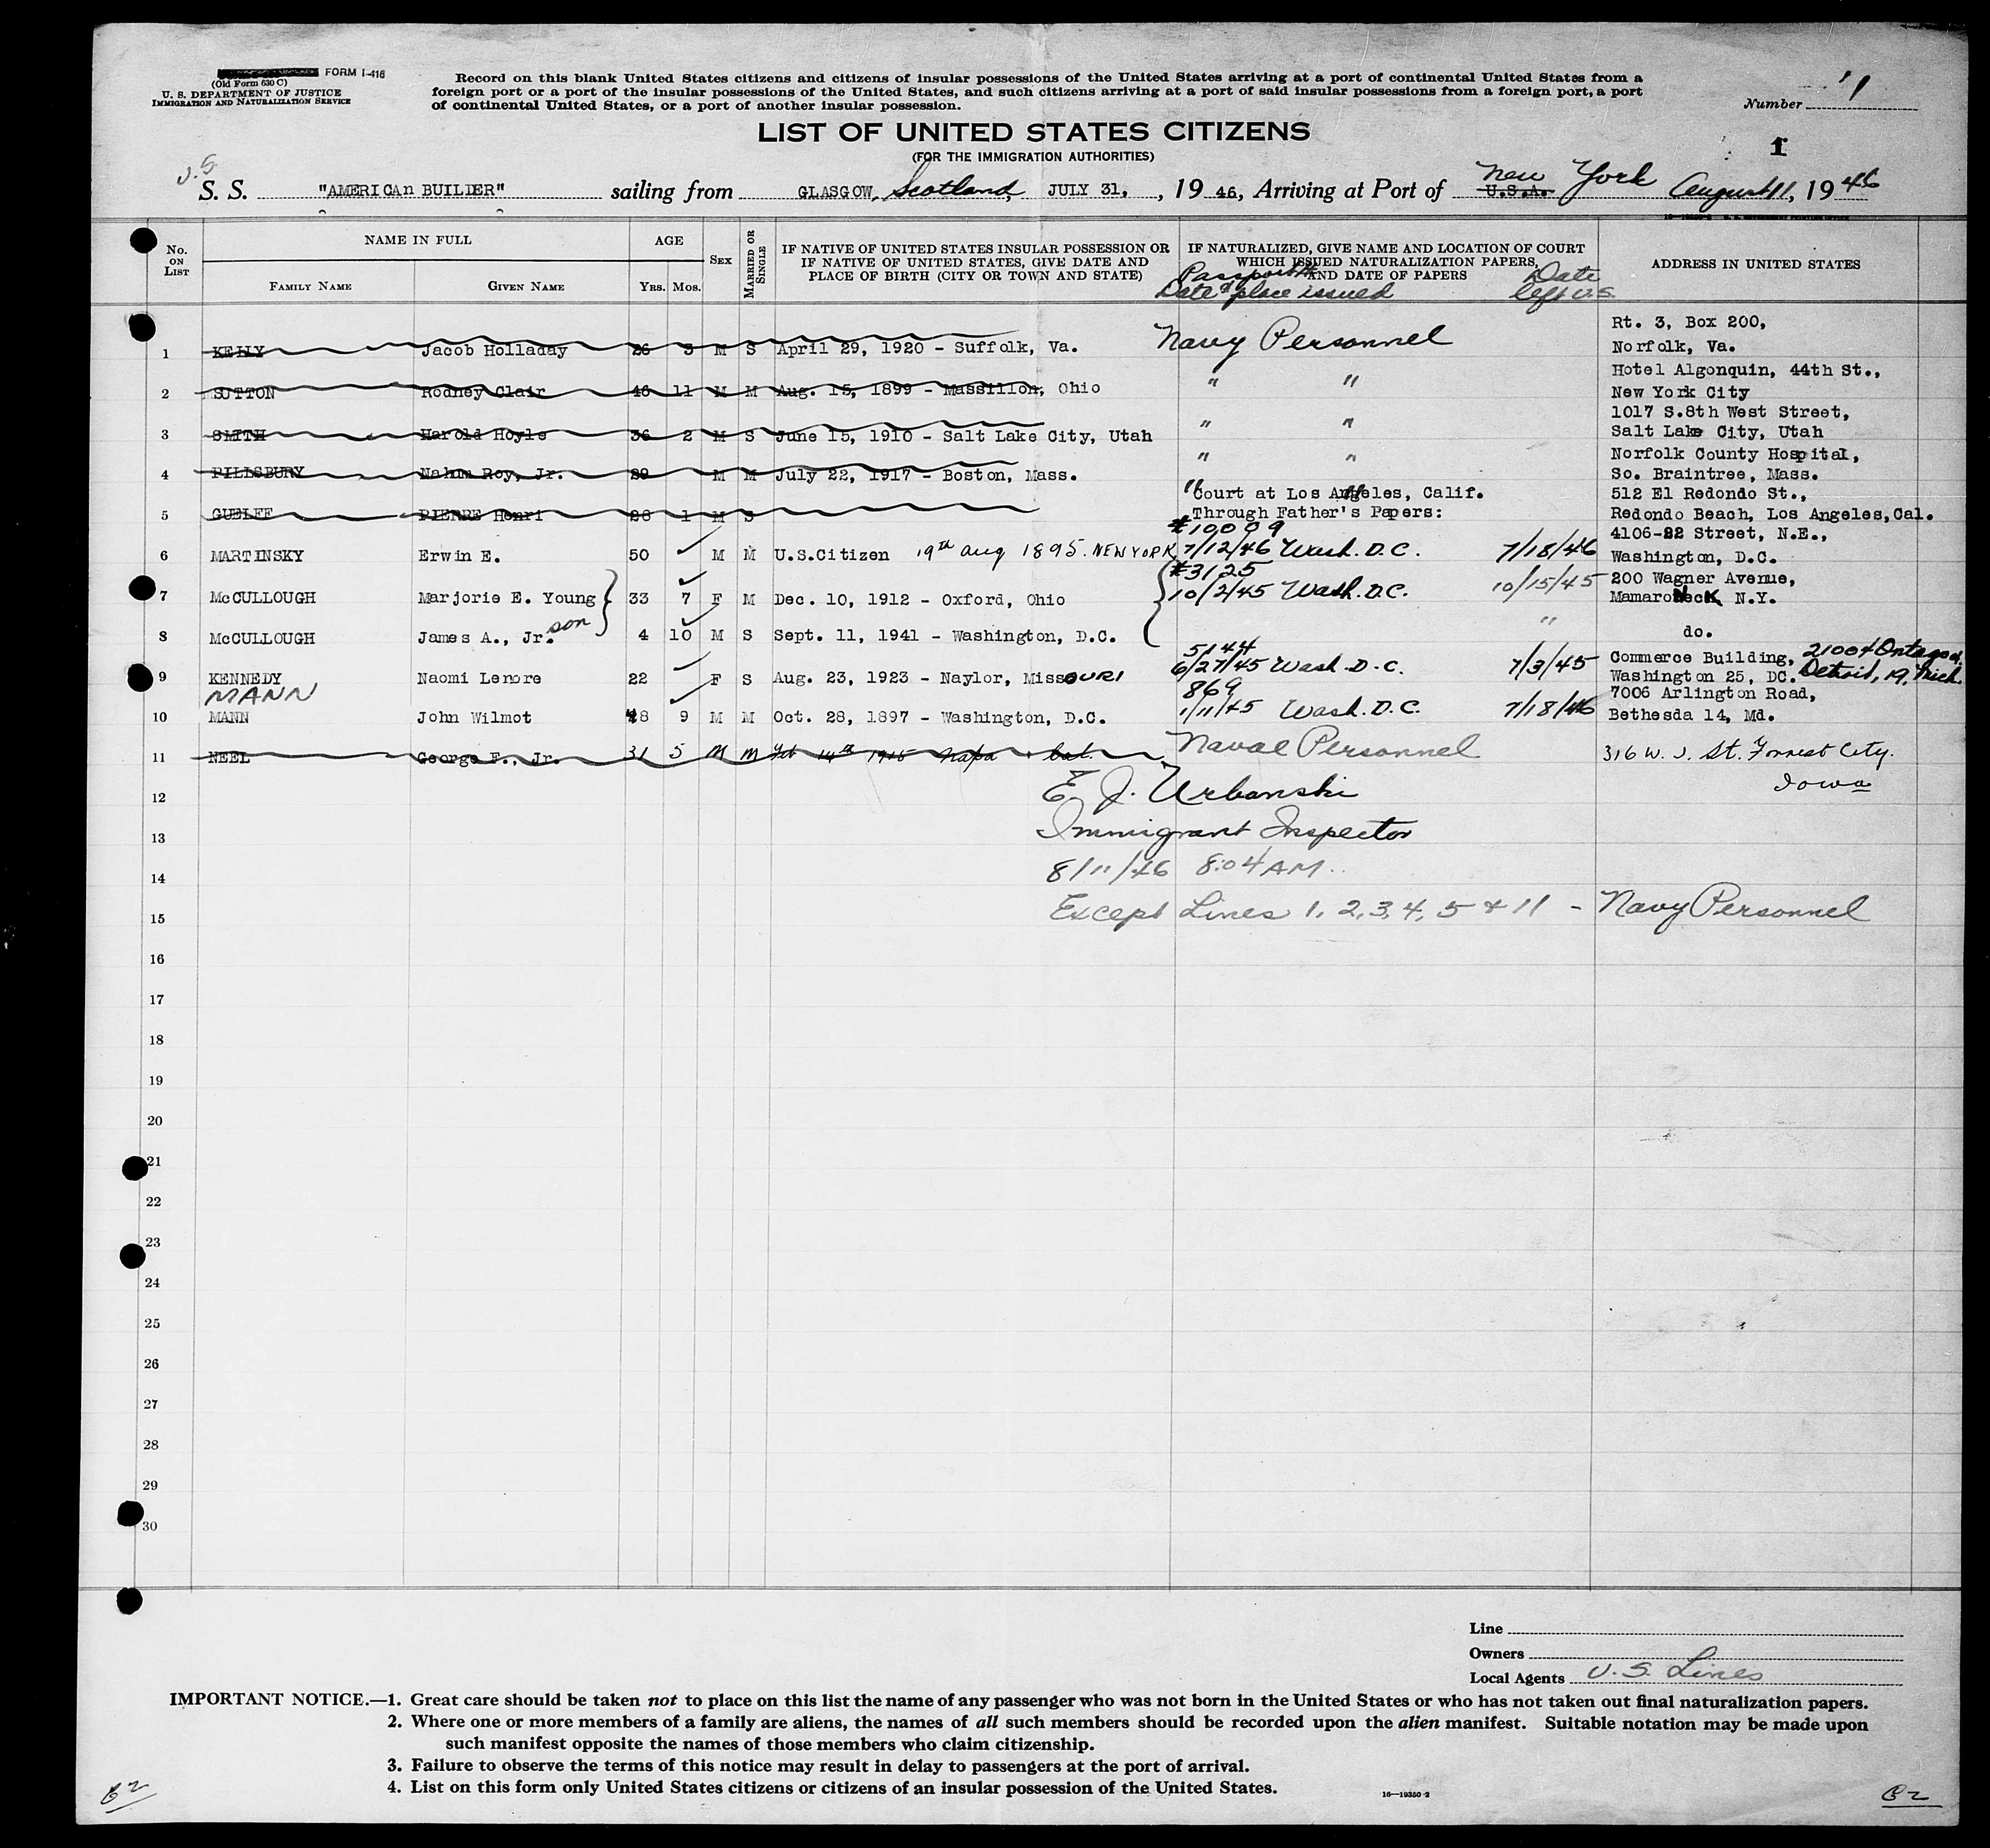 FORM I-416
(Old Form 630 C)
U. S. DEPARTMENT OF JUSTICE
IMMIGRATION AND NATURALIZATION SERVICE
Record on this blank United States citizens and citizens of insular possessions of the United States arriving at a port of continental United States from a
foreign port or a port of the insular possessions of the United States, and such citizens arriving at a port of said insular possessions from a foreign port, a port
of continental United States, or a port of another insular possession.
Number 1
LIST OF UNITED STATES CITIZENS
(FOR THE IMMIGRATION AUTHORITIES)
1
U.S.
S. S. "AMERICAn BUILDER" sailing from GLASGOW, Scotland, JULY 31, , 19 46, Arriving at Port of U.S.A. New York August 11, 19 46
No. ON LIST
NAME IN FULL
FAMILY NAME
GIVEN NAME
AGE
YRS. MOS.
SEX
MARRIED OR SINGLE
IF NATIVE OF UNITED STATES INSULAR POSSESSION OR
IF NATIVE OF UNITED STATES, GIVE DATE AND
PLACE OF BIRTH (CITY OR TOWN AND STATE)
IF NATURALIZED, GIVE NAME AND LOCATION OF COURT
WHICH ISSUED NATURALIZATION PAPERS,
AND DATE OF PAPERS
Passport #
Date & place issued
Date
left U.S.
ADDRESS IN UNITED STATES
1 KELLY Jacob Holladay 26 3 M S April 29, 1920 - Suffolk, Va. Navy Personnel Rt. 3, Box 200,
Norfolk, Va.
2 SUTTON Rodney Clair 46 11 M M Aug. 15, 1899 - Massillon, Ohio " " Hotel Algonquin, 44th St.,
New York City
3 SMITH Harold Hoyle 36 2 M S June 15, 1910 - Salt Lake City, Utah " " 1017 S.8th West Street,
Salt Lake City, Utah
4 PILLSBURY Nahum Roy, Jr. 29 M M July 22, 1917 - Boston, Mass. " " Norfolk County Hospital,
So. Braintree, Mass.
5 GUELFF PIERRE Henri 28 1 M S " Court at Los Angeles, Calif.
Through Father's Papers:
512 El Redondo St.,
Redondo Beach, Los Angeles, Cal.
#10009
6 MARTINSKY Erwin E. 50 M M U.S.Citizen 19th Aug 1895. NEW YORK 7/12/46 Wash. D.C. 7/18/46 4106-22 Street, N.E.,
Washington, D.C.
#3125
7 McCULLOUGH Marjorie E. Young 33 7 F M Dec. 10, 1912 - Oxford, Ohio 10/2/45 Wash. D.C. 10/15/45 200 Wagner Avenue,
MamaroNecK N.Y.
8 McCULLOUGH James A., Jr. son 4 10 M S Sept. 11, 1941 - Washington, D.C. " do.
5144
9 KENNEDY Naomi Lenore 22 F S Aug. 23, 1923 - Naylor, MissOURI 6/27/45 Wash. D.C. 7/3/45 Commerce Building,
Washington 25, DC. Detroit, 19, Mich.
MANN
869
10 MANN John Wilmot 48 9 M M Oct. 28, 1897 - Washington, D.C. 1/11/45 Wash. D.C. 7/18/46 7006 Arlington Road,
Bethesda 14, Md.
11 NEEL George F., Jr. 31 5 M M Feb 14th 1915 Napa Cal. Naval Personnel 316 W. J. St. Forrest City.
Iowa
12 E. J. Urbanski
13 Immigrant Inspector
14 8/11/46 8:04 AM.
15 Except Lines 1, 2, 3, 4, 5 & 11 - Navy Personnel
16
17
18
19
20
21
22
23
24
25
26
27
28
29
30
Line
Owners
Local Agents U.S. Lines
IMPORTANT NOTICE.—1. Great care should be taken not to place on this list the name of any passenger who was not born in the United States or who has not taken out final naturalization papers.
2. Where one or more members of a family are aliens, the names of all such members should be recorded upon the alien manifest. Suitable notation may be made upon
such manifest opposite the names of those members who claim citizenship.
3. Failure to observe the terms of this notice may result in delay to passengers at the port of arrival.
4. List on this form only United States citizens or citizens of an insular possession of the United States.
16—19350-2